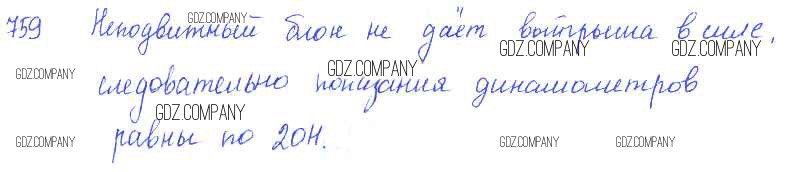 759 Неподвижный блок не даёт выигрыша в силе,
следовательно показания динамометров
равны по 20Н.
GDZ.COMPANY
GDZ.COMPANY
GDZ.COMPANY
GDZ.COMPANY
GDZ.COMPANY
GDZ.COMPANY
GDZ.COMPANY
GDZ.COMPANY
GDZ.COMPANY